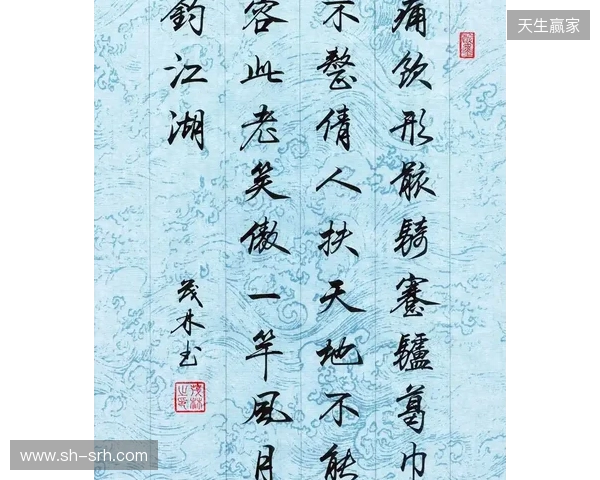 痛饮形骸骑蹇驴葛巾
不整倩人扶天地不能
容此老笑傲一竿风月
钓江湖
茂林书
天生赢家
www.sh-srh.com